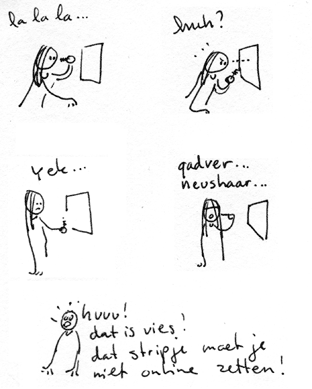 la la la...
huh?
yek...
gadver...
neushaar...
huuu!
dat is vies!
dat stripje moet je
niet online zetten!